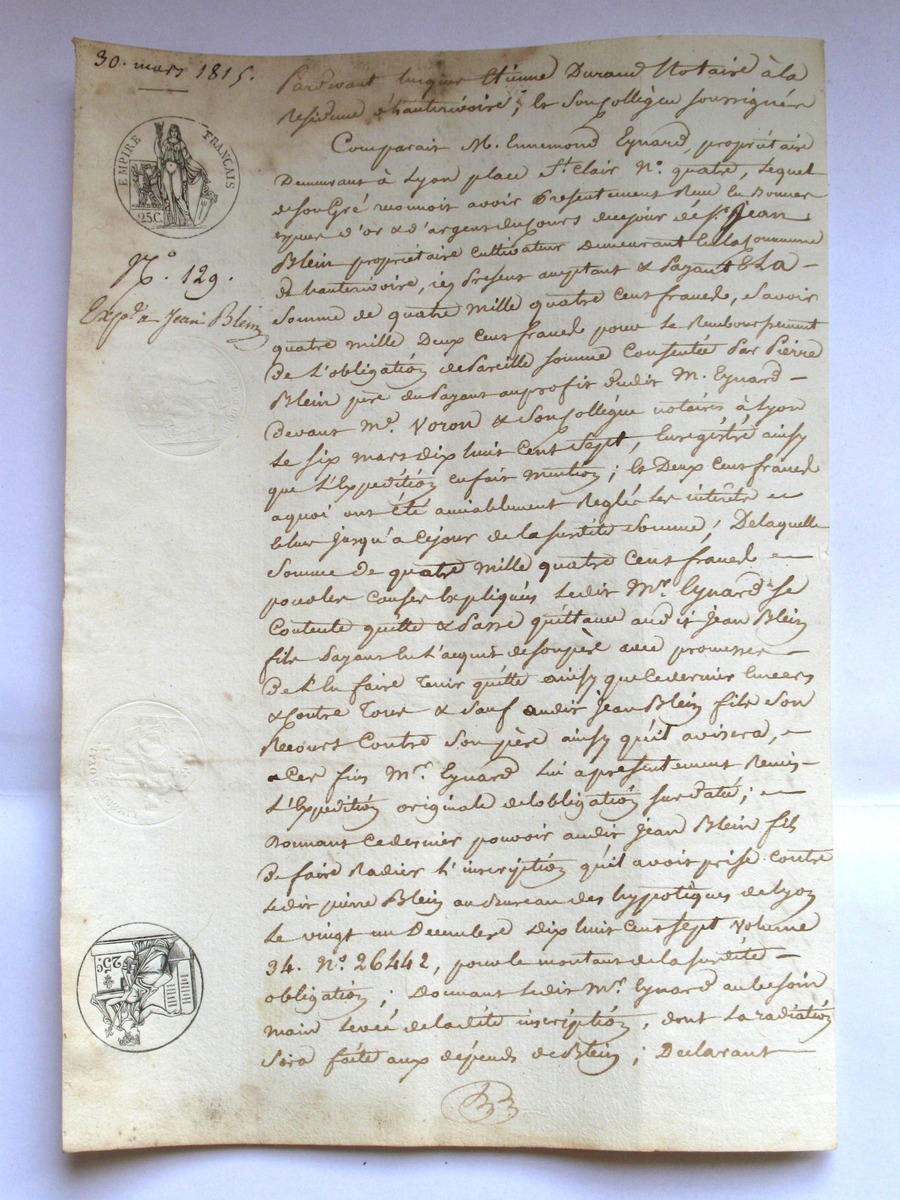 30. mars 1815.
EMPIRE FRANÇAIS
25C.
N.º 129.
Expéd. a Jean Blein
ROYAL
25C.
Pardevant Etienne Durand Notaire à la
Residence d'hauterivoire, & son Collègue soussignés
Comparait M. Ennemond Eynard, propriétaire
Demeurant à Lyon place St. Clair N.º quatre, Lequel
de son Gré reconnoit avoir Présentement Reçu En Bonnes
espèces d'or & d'argent du Cours de ce jour de Sr. Jean
Blein propriétaire cultivateur Demeurant En la Commune
d'hauterivoire, icy Présent acceptant & Payant La
Somme de quatre mille quatre cens francs, Savoir
quatre mille Deux cens francs pour le Remboursement
De L'obligation de Pareille somme Consentie Par Pierre
Blein père du Payant au profit dudit M. Eynard
Devant Me. Voron & Son Collègue notaires à Lyon
Le six mars dix huit Cent Sept, Enregistré ainsy
que L'Expedition en fait mention; & Deux Cens francs
a quoi ont été amiablement Reglés Les interêts
Echus jusqu'a ce jour de la susdite Somme; De laquelle
Somme de quatre mille quatre Cens francs
pour les Causes Expliqués Ledit Mr. Eynard Se
Contente quitte & Passe quittance audit Jean Blein
fils Payant En L'acquit de son père avec promesse
De L'En faire Tenir quitte ainsy que Ce dernier Envers
& Contre Tous & Sauf audit Jean Blein fils Son
Recours Contre Son père ainsy qu'il avisera,
a Ces fins Mr. Eynard Lui a présentement Remis
L'Expedition originale de l'obligation sus datée;
Donnant Ce dernier pouvoir audit Jean Blein fils
de faire Radier L'inscription qu'il avoit prise Contre
Ledit pierre Blein au Bureau des hypotèques de Lyon
Le vingt un Decembre Dix huit Cent Sept Volume
34. N.º 26442, pour le montant de la susdite
obligation; Donnant Ledit Mr. Eynard au besoin
main Levée de ladite inscription, dont La radiation
Sera faite aux dépends de Blein; Declarant